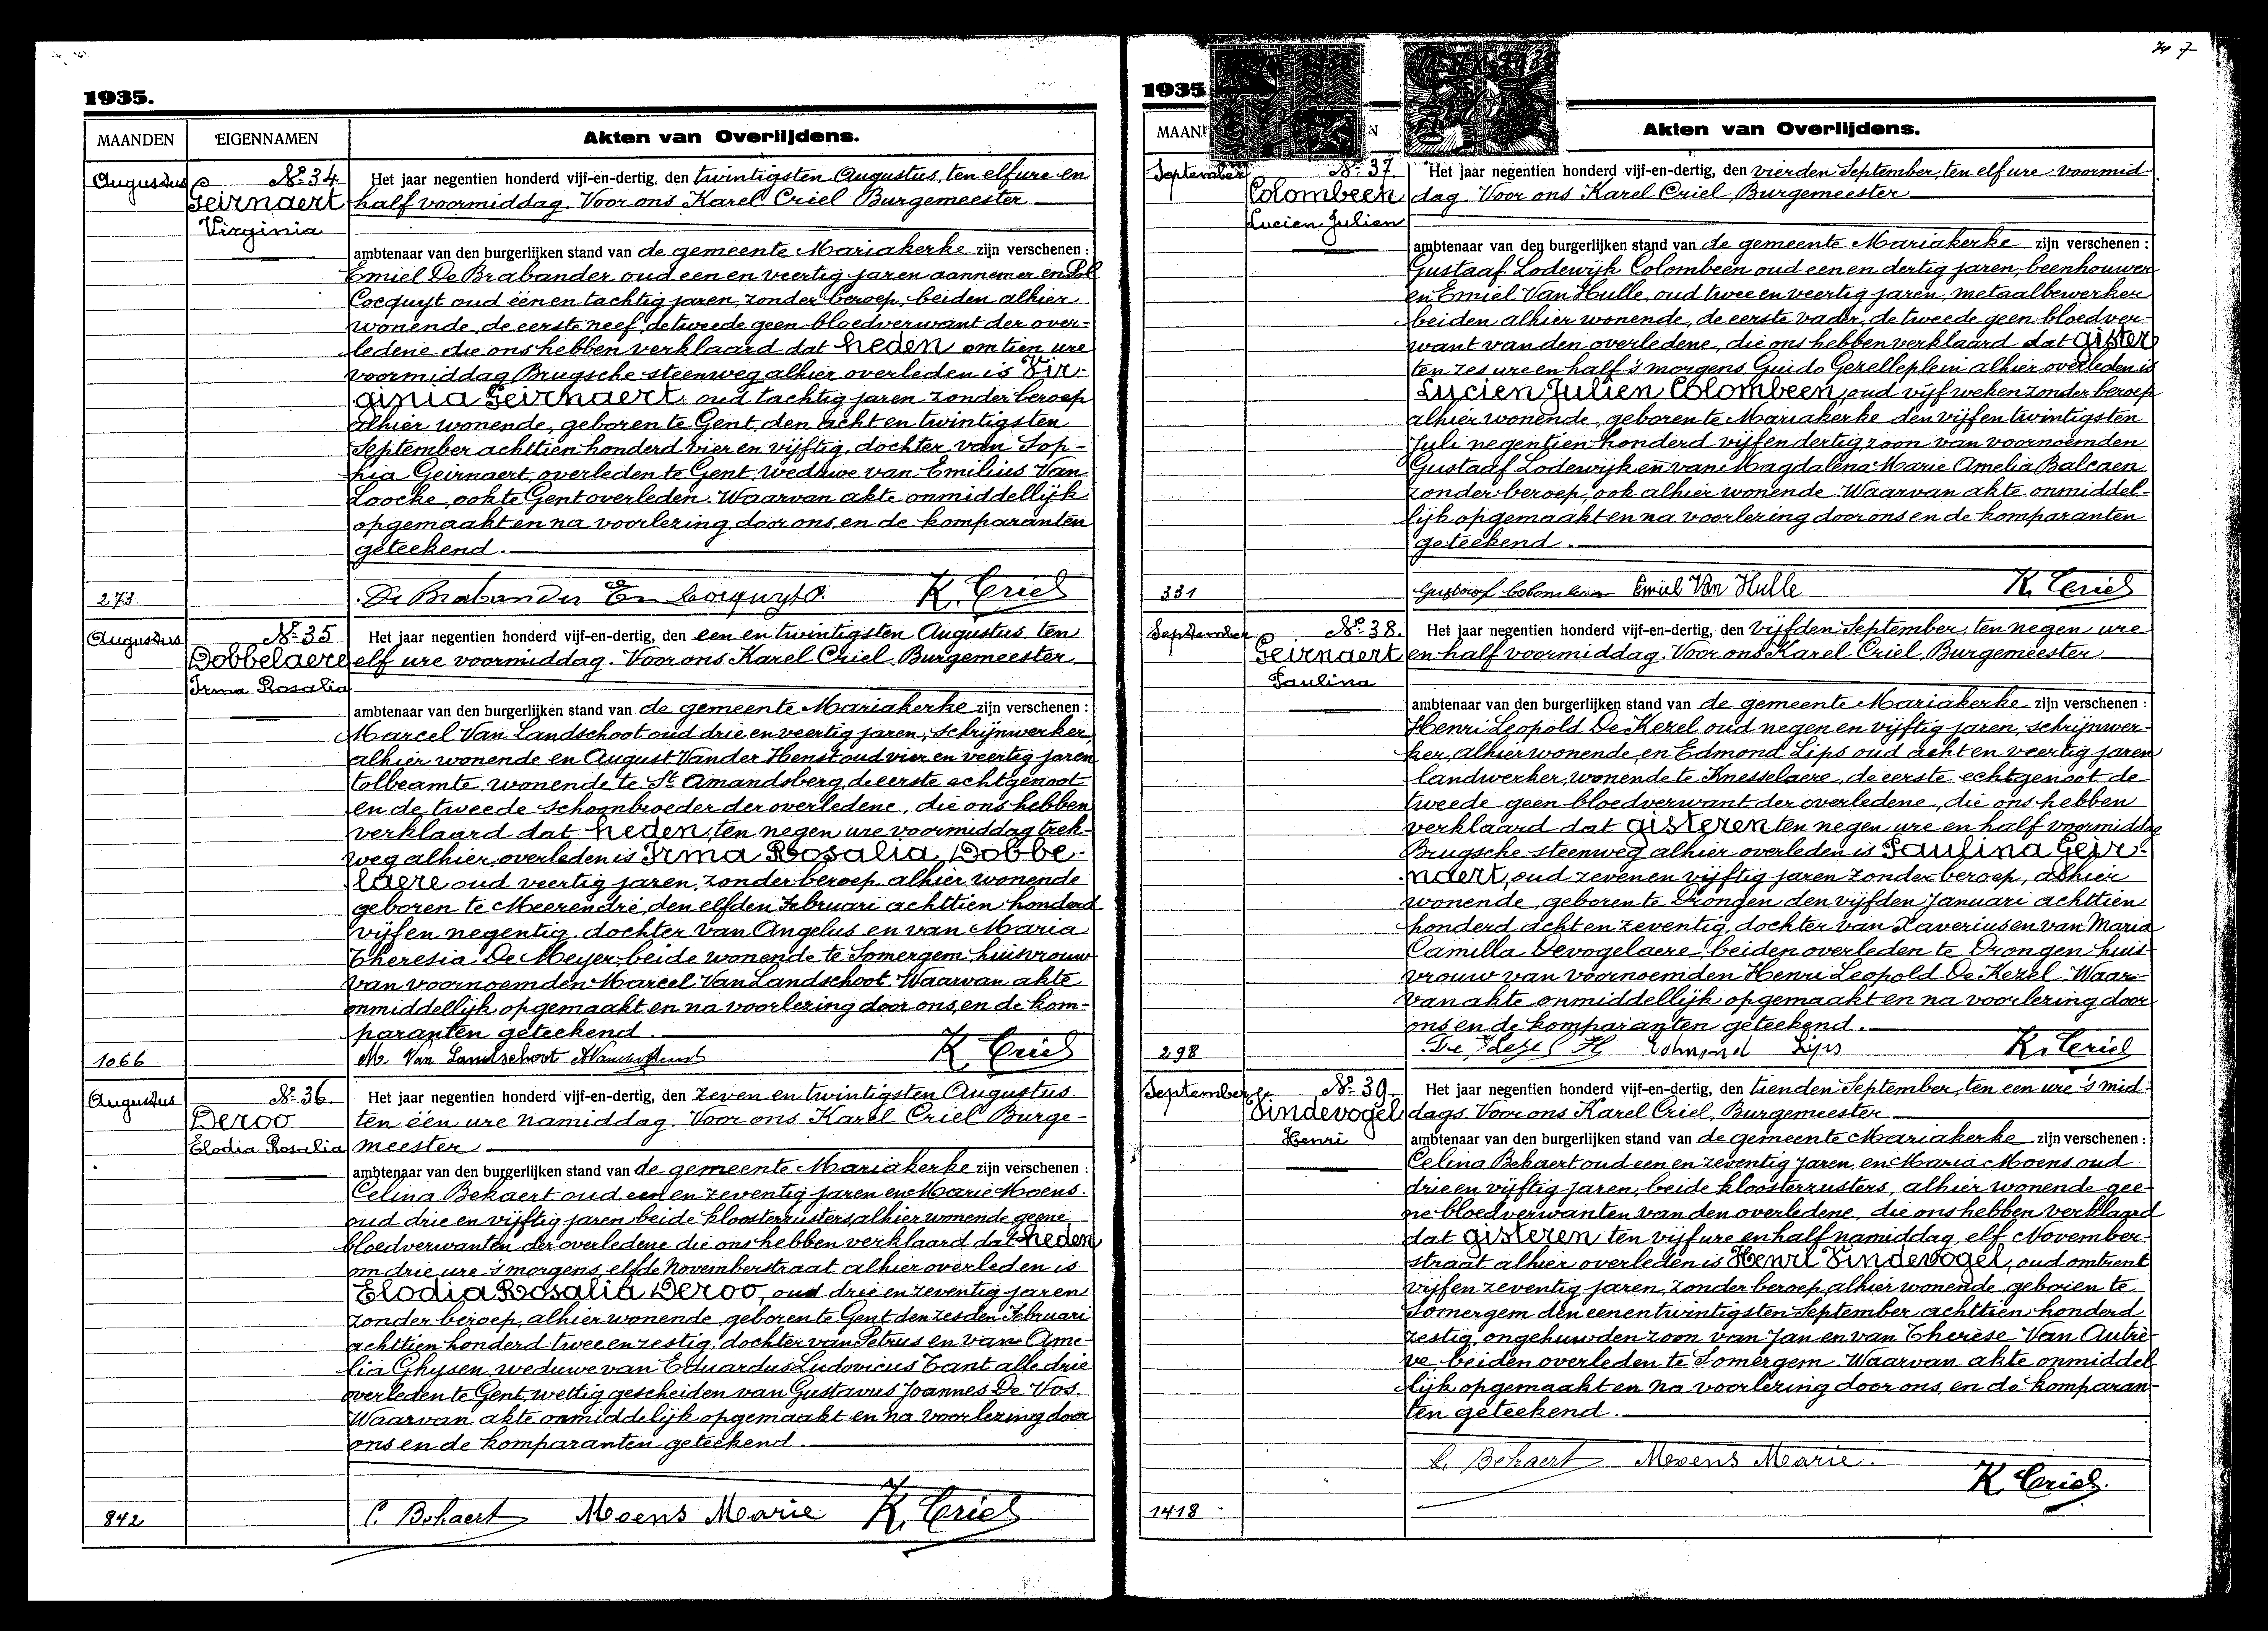 1935.
MAANDEN EIGENNAMEN Akten van Overlijdens.
Augustus Nº 34 Het jaar negentien honderd vijf-en-dertig, den twintigsten Augustus, ten elf ure en
Geirnaert half voormiddag. Voor ons Karel Criel Burgemeester
Virginia
ambtenaar van den burgerlijken stand van de gemeente Mariakerke zijn verschenen :
Emiel De Brabander oud een en veertig jaren aannemer en Pol
Cocquyt oud één en tachtig jaren, zonder beroep, beiden alhier
wonende, de eerste neef, de tweede geen bloedverwant der over-
ledene die ons hebben verklaard dat heden om tien ure
voormiddag Brugsche steenweg alhier overleden is Vir-
ginia Geirnaert oud tachtig jaren zonder beroep
alhier wonende, geboren te Gent, den acht en twintigsten
September achttien honderd vier en vijftig, dochter van Sop-
hia Geirnaert, overleden te Gent, weduwe van Emilius Van
Loocke, ook te Gent overleden. Waarvan akte onmiddellijk
opgemaakt en na voorlezing, door ons, en de komparanten
geteekend.
273. De Brabander Em Cocquyt P. K. Criel
Augustus Nº 35 Het jaar negentien honderd vijf-en-dertig, den een en twintigsten Augustus, ten
Dobbelaere elf ure voormiddag. Voor ons Karel Criel, Burgemeester.
Irma Rosalia
ambtenaar van den burgerlijken stand van de gemeente Mariakerke zijn verschenen :
Marcel Van Landschoot oud drie en veertig jaren, schrijnwerker,
alhier wonende en August Vander Henst oud vier en veertig jaren
tolbeamte, wonende te St Amandsberg, de eerste echtgenoot
en de tweede schoonbroeder der overledene, die ons hebben
verklaard dat heden, ten negen ure voormiddag trek-
weg alhier, overleden is Irma Rosalia Dobbe-
laere oud veertig jaren, zonder beroep, alhier wonende
geboren te Meerendré, den elfden Februari achttien honderd
vijf en negentig, dochter van Angelus en van Maria
Theresia De Meyer, beide wonende te Somergem, huisvrouw
van voornoemden Marcel Van Landschoot. Waarvan akte
onmiddellijk opgemaakt en na voorlezing door ons, en de kom-
paranten geteekend.
1066 M. Van Landschoot K Criel
Augustus Nº 36. Het jaar negentien honderd vijf-en-dertig, den zeven en twintigsten Augustus
Deroo ten één ure namiddag. Voor ons Karel Criel Burge-
Elodia Rosalia meester
ambtenaar van den burgerlijken stand van de gemeente Mariakerke zijn verschenen :
Celina Bekaert oud een en zeventig jaren en Marie Moens.
oud drie en vijftig jaren beide kloosterzusters, alhier wonende geene
bloedverwanten der overledene die ons hebben verklaard dat heden
om drie ure 's morgens, elfde Novemberstraat alhier overleden is
Elodia Rosalia Deroo, oud drie en zeventig jaren
zonder beroep, alhier wonende geboren te Gent den zesden Februari
achttien honderd twee en zestig, dochter van Petrus en van Ame-
lia Ghysen, weduwe van Eduardus Ludovicus Tant alle drie
overleden te Gent, wettig gescheiden van Gustavus Joannes De Vos.
Waarvan akte onmiddelijk opgemaakt en na voorlezing door
ons en de komparanten geteekend.
842 C. Bekaert Moens Marie K. Criel
7
1935
Akten van Overlijdens.
September Nº 37. Het jaar negentien honderd vijf-en-dertig, den vierden September, ten elf ure voormid-
Colombeen dag. Voor ons Karel Criel, Burgemeester
Lucien Julien
ambtenaar van den burgerlijken stand van de gemeente Mariakerke zijn verschenen :
Gustaaf Lodewijk Colombeen oud een en dertig jaren, beenhouwer
en Emiel Van Hulle, oud twee en veertig jaren, metaalbewerker
beiden alhier wonende, de eerste vader, de tweede geen bloedver-
want van den overledene, die ons hebben verklaard dat gister
ten zes ure en half 's morgens Guido Gezelleplein alhier overleden is
Lucien Julien Colombeen, oud vijf weken zonder beroep
alhier wonende, geboren te Mariakerke den vijf en twintigsten
Juli negentien honderd vijf en dertig, zoon van voornoemden
Gustaaf Lodewijk en van Magdalena Marie Amelia Balcaen
zonder beroep, ook alhier wonende. Waarvan akte onmiddel-
lijk opgemaakt en na voorlezing door ons en de komparanten
geteekend.
331 Gustaaf Colombeen Emiel Van Hulle K. Criel
September Nº 38. Het jaar negentien honderd vijf-en-dertig, den vijfden September, ten negen ure
Geirnaert en half voormiddag. Voor ons Karel Criel, Burgemeester
Paulina
ambtenaar van den burgerlijken stand van de gemeente Mariakerke zijn verschenen :
Henri Leopold De Kezel oud negen en vijftig jaren, schrijnwer-
ker, alhier wonende, en Edmond Lips oud acht en veertig jaren
landwerker, wonende te Knesselaere, de eerste echtgenoot de
tweede geen bloedverwant der overledene, die ons hebben
verklaard dat gisteren ten negen ure en half voormiddag
Brugsche steenweg alhier overleden is Paulina Geir-
naert, oud zeven en vijftig jaren zonder beroep, alhier
wonende, geboren te Drongen den vijfden Januari achttien
honderd acht en zeventig, dochter van Xaverius en van Maria
Camilla Devogelaere, beiden overleden te Drongen huis-
vrouw van voornoemden Henri Leopold De Kezel. Waar-
van akte onmiddellijk opgemaakt en na voorlezing door
ons en de komparanten geteekend.
298 De Kezel H Edmond Lips K. Criel
September Nº 39. Het jaar negentien honderd vijf-en-dertig, den tienden September, ten een ure 's mid-
Vindevogel dags. Voor ons Karel Criel, Burgemeester
Henri ambtenaar van den burgerlijken stand van de gemeente Mariakerke zijn verschenen :
Celina Bekaert oud een en zeventig jaren, en Maria Moens oud
drie en vijftig jaren, beide kloosterzusters, alhier wonende gee-
ne bloedverwanten van den overledene, die ons hebben verklaard
dat gisteren ten vijf ure en half namiddag, elf November
straat alhier overleden is Henri Vindevogel, oud omtrent
vijf en zeventig jaren, zonder beroep, alhier wonende geboren te
Somergem den eenentwintigsten September achttien honderd
zestig, ongehuwden zoon van Jan en van Therèse Van Autrè-
ve, beiden overleden te Somergem. Waarvan akte onmiddel
lijk opgemaakt en na voorlezing door ons, en de komparan-
ten geteekend.
C. Bekaert Moens Marie.
K Criel.
1418